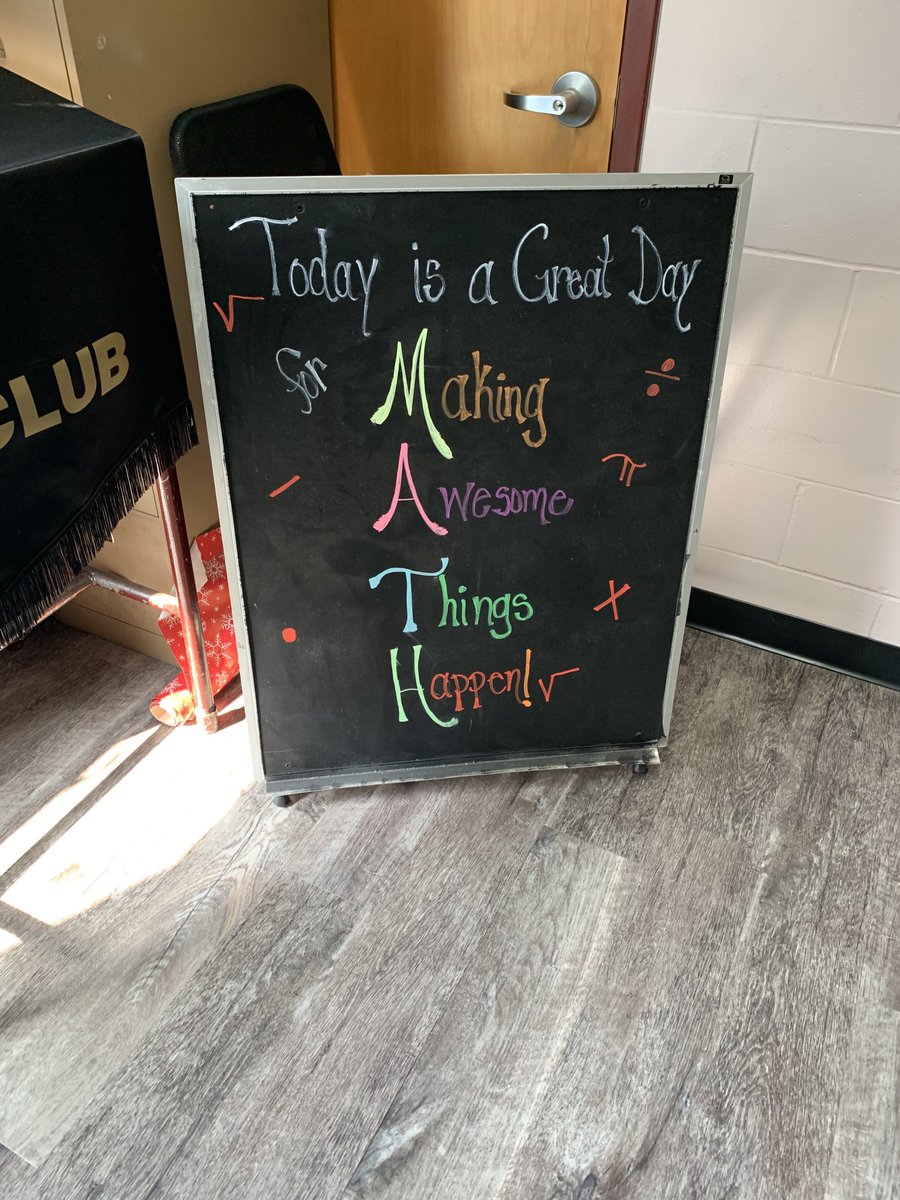 Today is a Great Day
√
for Making
÷
Awesome
π
-
Things
×
•
Happen! √
CLUB